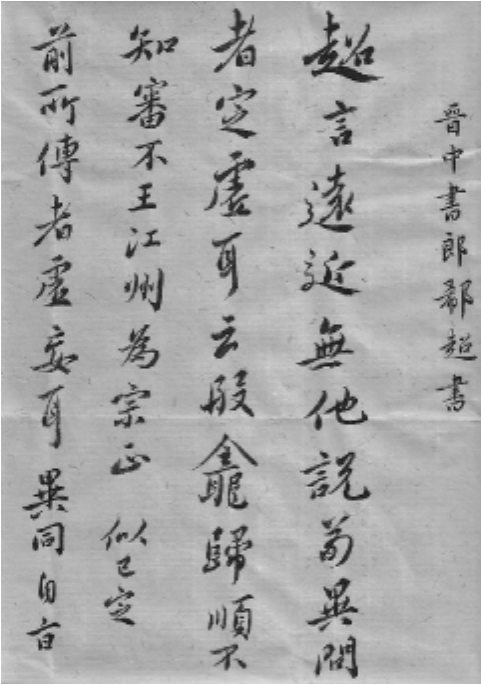 晉中書郎郗超書
超言遠近無他說前異問
者定虛耳云殷龕歸順不
知審不王江州為宗正 似已定
前所傳者虛妄耳異同自